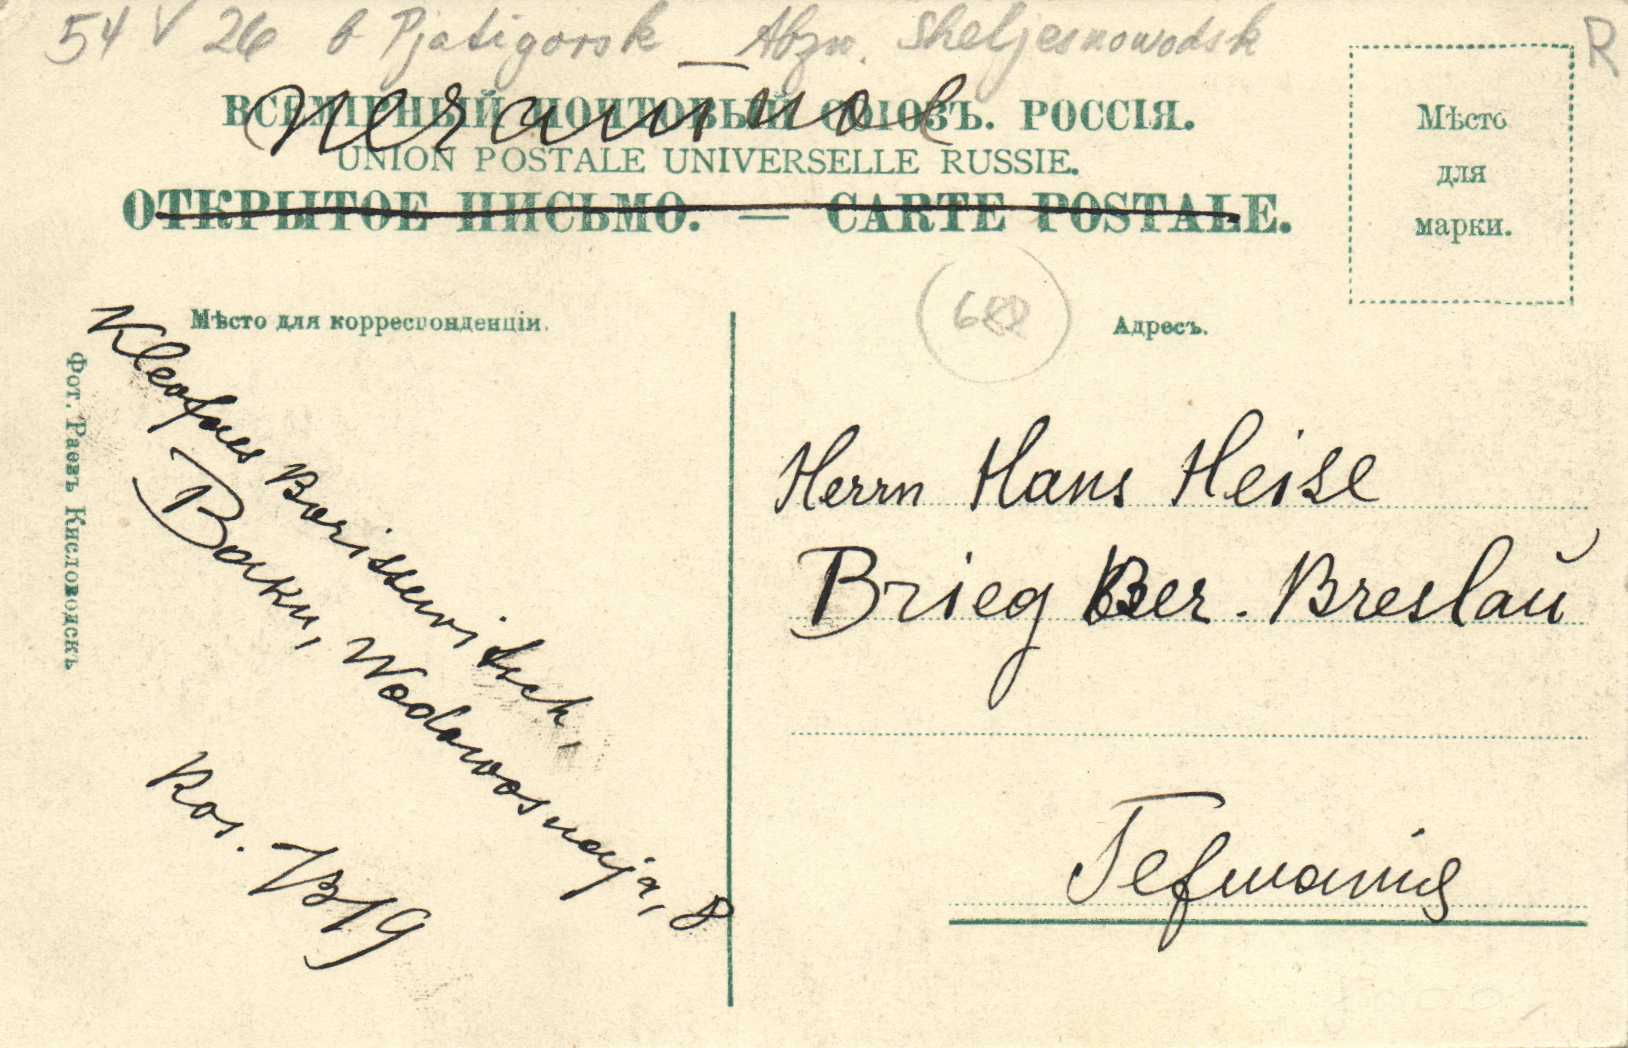 54 V 26 b Pjatigorsk Abzw. Sheljesnowodsk R
ВСЕМІРНЫЙ ПОЧТОВЫЙ СОЮЗЪ. РОССІЯ.
UNION POSTALE UNIVERSELLE RUSSIE.
ОТКРЫТОЕ ПИСЬМО. — CARTE POSTALE.
Мѣсто
для
марки.
Мѣсто для корреспонденціи.
688
Адресъ.
Фот. Раевъ Кисловодскъ
Kleofas Borissewitsch,
Baku, Wodowosnaja, 8
Herrn Hans Heise
Brieg Ber. Breslaŭ
Германія